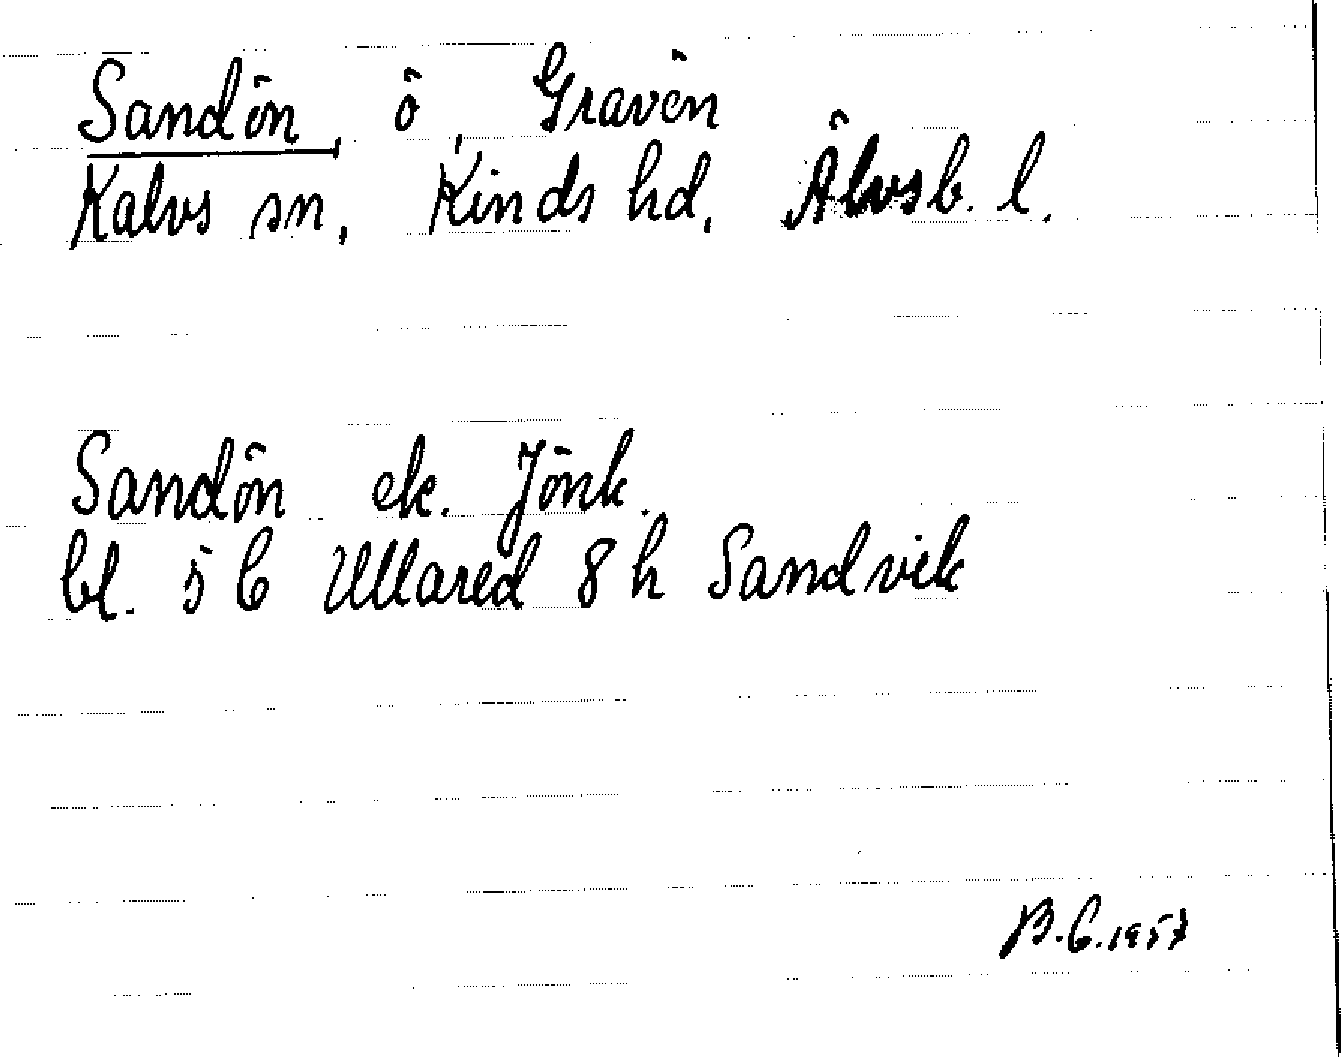 Sandön, ö, Gravên
Kalvs sn, Kinds hd, Älvsb. l.
Sandön ek. Jönk.
bl. 5 C Ullared 8 h Sandvik
B.C. 1957